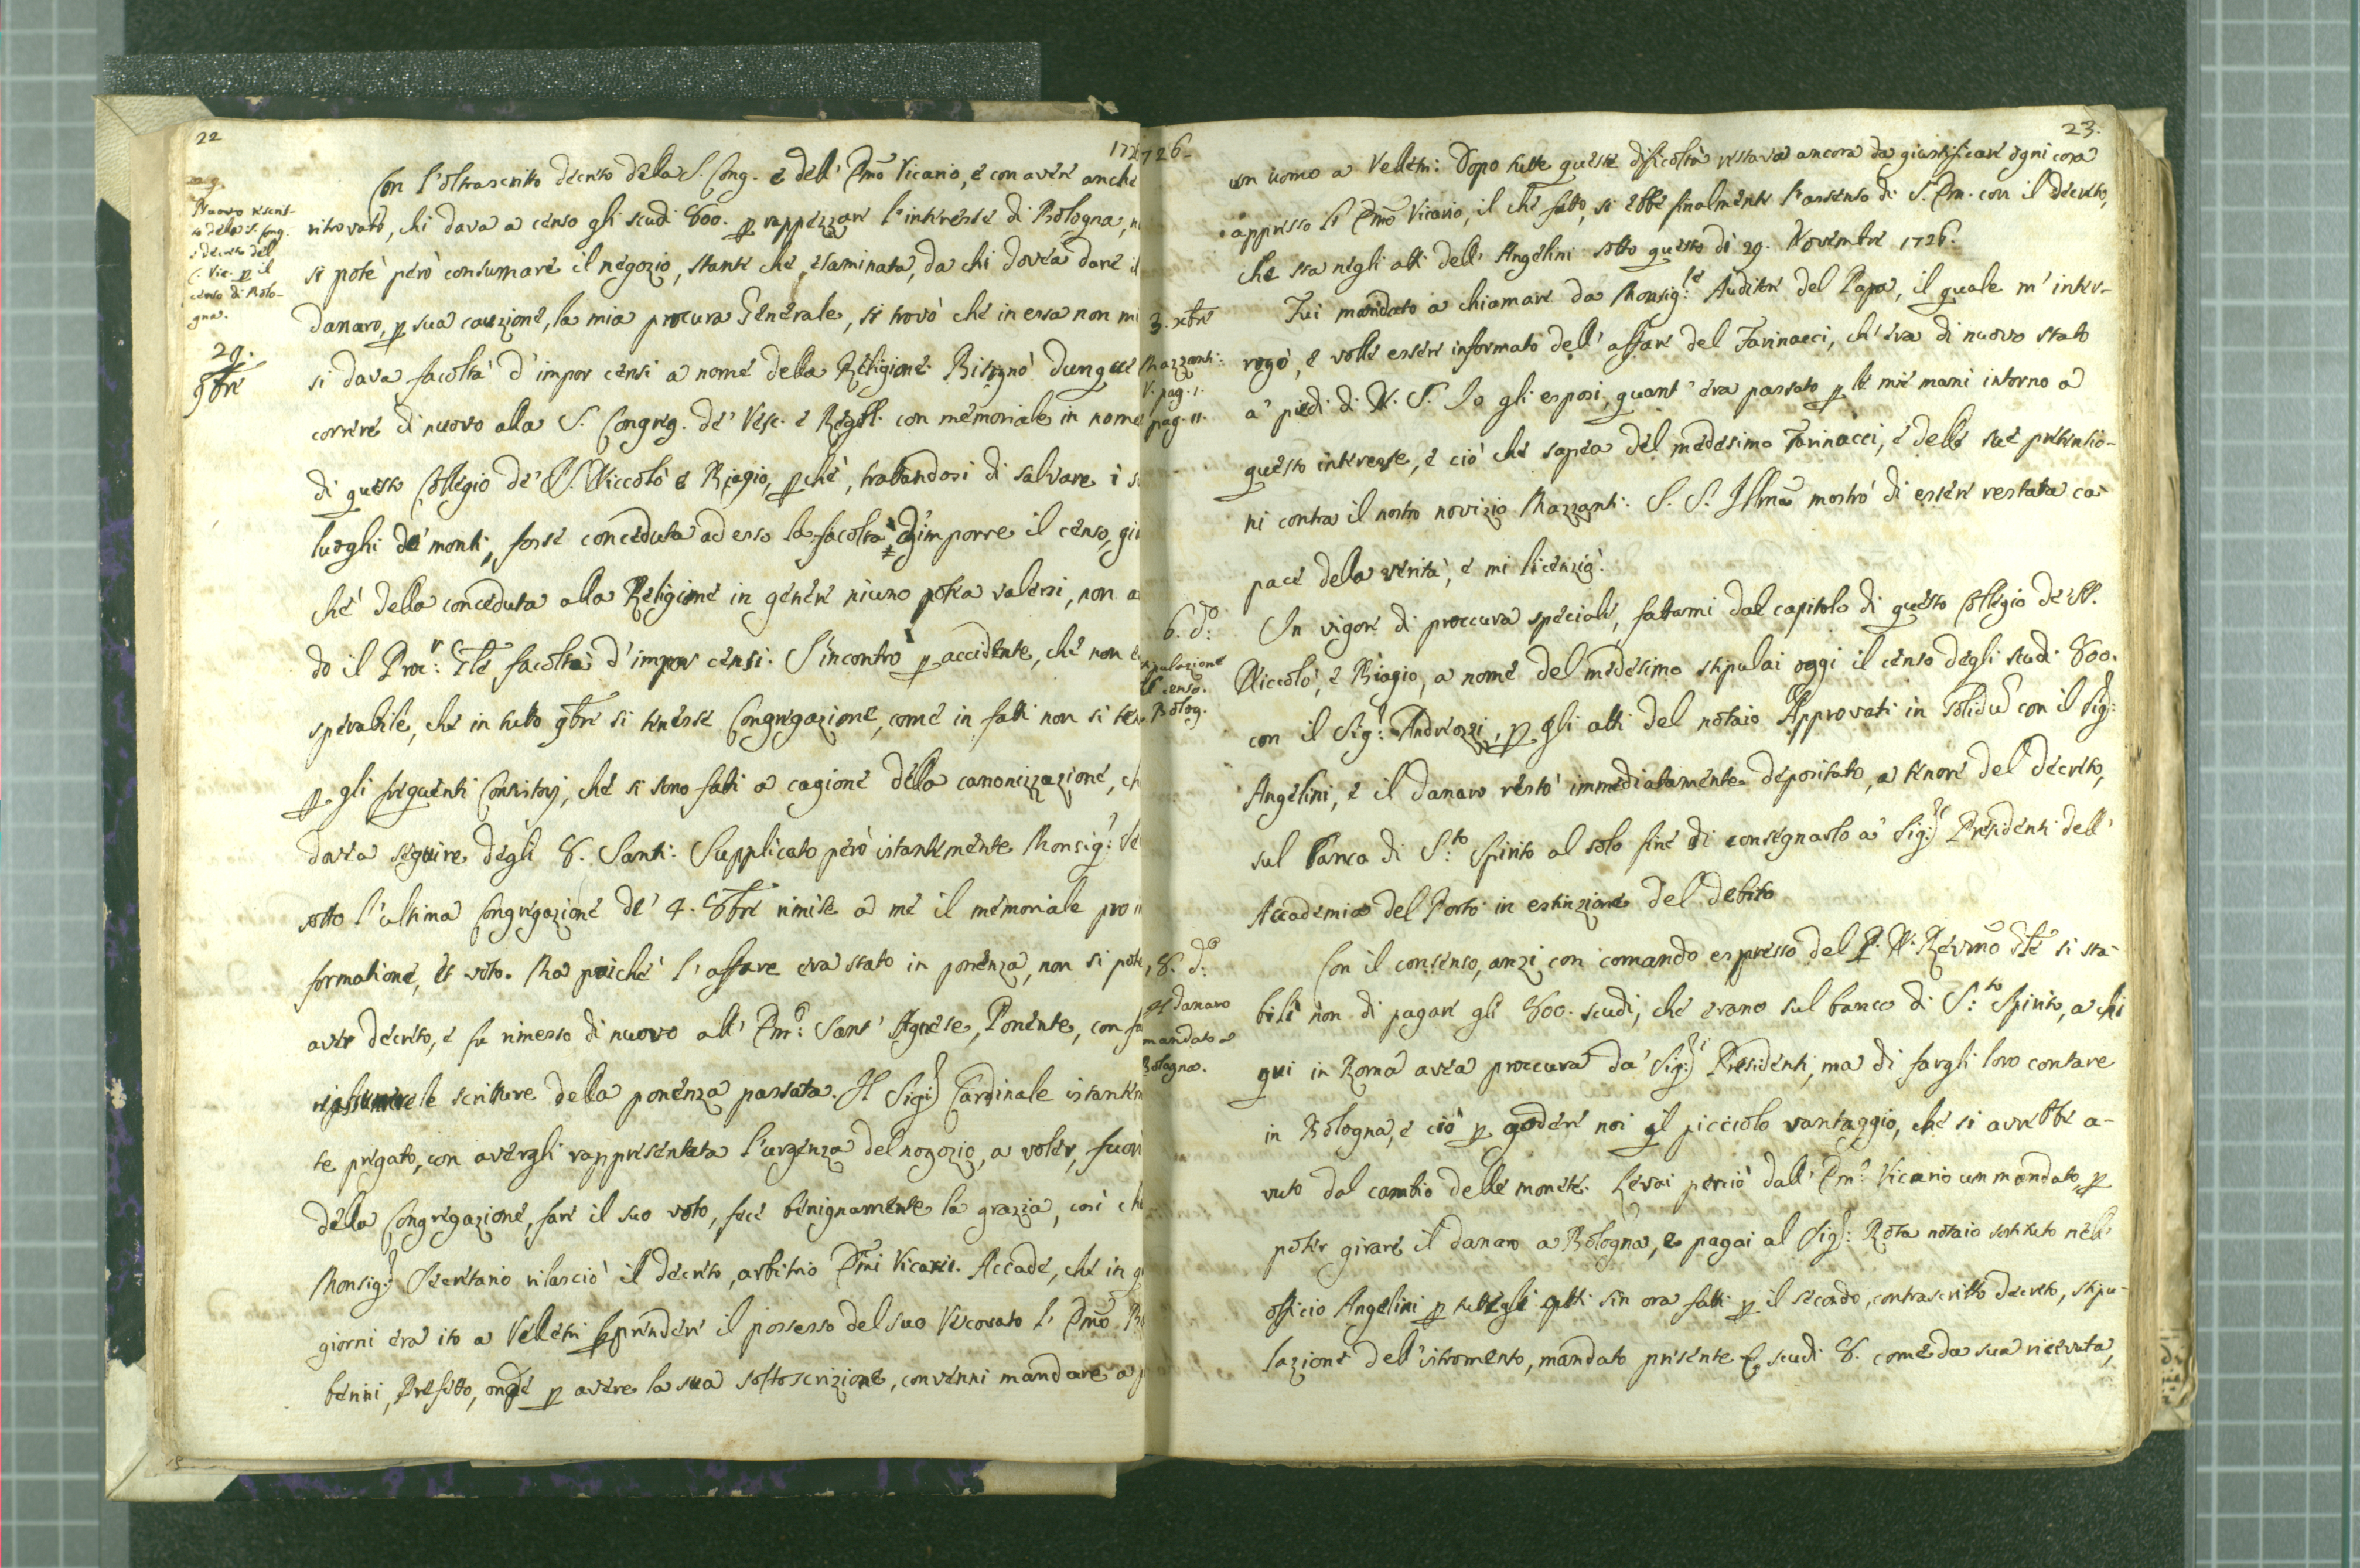 22
172
Con l'oltrascritto decreto della S. Cong. e dell' Emo Vicario, e con avere anche
ritrovato, chi dava a censo gli scudi 800. p rappezzare l'interesse di Bologna,
si potè però consumare il negozio, stante che, esaminata, da chi dovea dare il
danaro, p sua cauzione, la mia procura Generale, si trovò che in essa non mi
si dava facoltà d'impor censi a nome della Religione. Bisognò dunque
correre di nuovo alla S. Congreg. de' Vesc. e Regol. con memoriale in nome
di questo Collegio de' SS. Niccolò e Biagio, pchè, trattandosi di salvare i
luoghi de' monti, fosse conceduta ad esso la facoltà d'imporre il censo,
chè della conceduta alla Religione in genere niuno potea valersi, non
do il Proc.r Gle facoltà d'impor censi. S'incontrò p accidente, che non
sperabile, che in tutto 9bre si tenesse Congregazione, come in fatti non si
p gli frequenti Concistorj, che si sono fatti a cagione della canonizzazione,
dovea seguire degli 8. Santi. Supplicato però istantemente Monsig.r
sotto l'ultima Congregazione de' 4. 8bre rimise a me il memoriale pro
formatione, et voto. Ma poichè l'affare era stato in ponenza, non si
aver decreto, e fu rimesso di nuovo all' Em.o Sant' Agnese, Ponente, con
riassumere le scritture della ponenza passata. Il Sig.r Cardinale
te pregato, con avergli rappresentata l'urgenza del nogozio, a voler,
della Congregazione, fare il suo voto, fece benignamente la grazia, così
Monsig.r Secretario rilasciò il decreto, arbitrio Emi Vicarii. Accade, che in
giorni era ito a Velletri p prendere il possesso del suo Vescovato l' Emo
benini, Prefetto, onde p avere la sua sottoscrizione, convenni mandare a
Nuovo rescrit-
to della S. Cong.
e decreto del
C. Vic. p il
censo di Bolo-
gna.
29.
9bre
726.
23.
un uomo a Velletri. Dopo tutte queste dificoltà restava ancora da giustificare ogni cosa
appresso l' Emo Vicario, il che fatto, si ebbe finalmente l'assenso di S. Em. con il decreto,
che sta negli atti dell' Angelini sotto questo dì 29. Novembre 1726.
3. xbre
Fui mandato a chiamare da Monsig.re Auditore del Papa, il quale m'inter-
Mazzanti.
V. pag. 1.
pag. 11.
rogò, e volle essere informato dell' affare del Farinacci, ch'era di nuovo stato
a' piedi di N. S. Io gli esposi, quant' era passato p le mie mani intorno a
questo interesse, e ciò che sapea del medesimo Farinacci, e delle sue pretensio-
ni contra il nostro novizio Mazzanti. S. S. Illma mostrò di essere restata ca-
pace della verità, e mi licenziò.
6. d.o
In vigore di proccura speciale, fattami dal capitolo di questo Collegio de' SS.
Niccolò, e Biagio, a nome del medesimo stipulai oggi il censo degli scudi 800.
con il Sig.r Andreozzi, p gli atti del notaio Approvati in solidum con il Sig.r
Angelini, e il danaro restò immediatamente depositato, a tenore del decreto,
sul banco di S.to Spirito al solo fine di consegnarlo a' Sig.ri Presidenti dell'
Accademia del Porto in estinzione del debito
censo.
Bolog.
8. d.o
danaro
mandato a
Bologna.
Con il consenso, anzi con comando espresso del P. N. Revmo Gle si sta-
bilì non di pagare gli 800. scudi, che erano sul banco di S.to Spirito, a chi
qui in Roma avea proccura da' Sig.ri Presidenti, ma di fargli loro contare
in Bologna, e ciò p godere noi il picciolo vantaggio, che si avrebbe a-
vuto dal cambio delle monete. Levai perciò dall' Em.o Vicario un mandato, p
poter girare il danaro a Bologna, e pagai al Sig.r Rota notaio sostituto nell'
officio Angelini p tutti gli atti sin ora fatti p il secondo, contrascritto decreto, stipu-
lazione dell' istromento, mandato presente &, scudi 8. come da sua ricevuta,